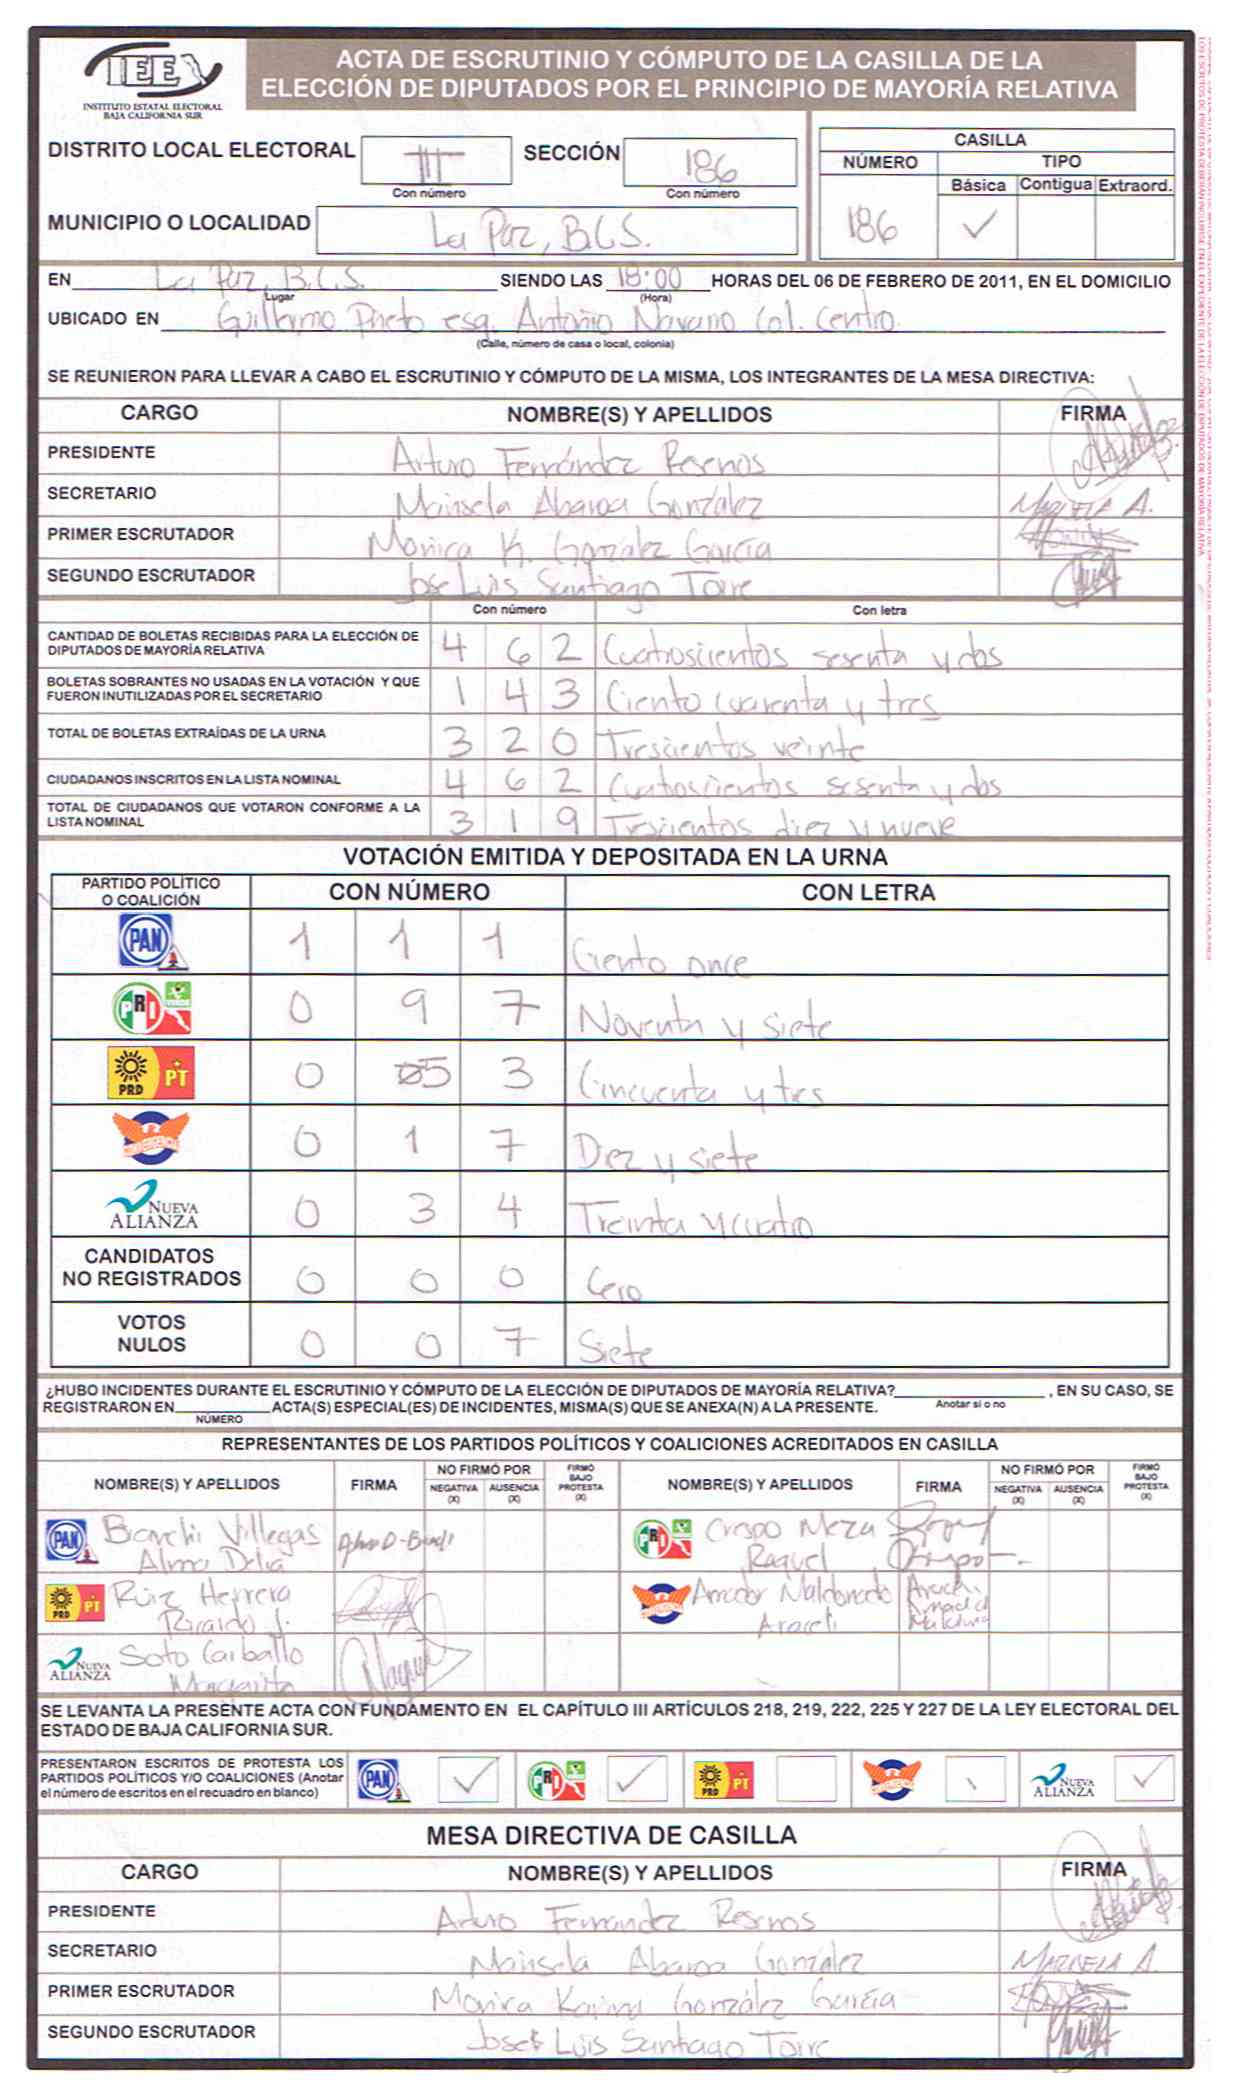 IEE
INSTITUTO ESTATAL ELECTORAL
BAJA CALIFORNIA SUR
ACTA DE ESCRUTINIO Y CÓMPUTO DE LA CASILLA DE LA
ELECCIÓN DE DIPUTADOS POR EL PRINCIPIO DE MAYORÍA RELATIVA
DISTRITO LOCAL ELECTORAL III SECCIÓN 186
Con número Con número
MUNICIPIO O LOCALIDAD La Paz, B.C.S.
CASILLA
NÚMERO TIPO
Básica Contigua Extraord.
186 ✓
EN La Paz, B.C.S. SIENDO LAS 18:00 HORAS DEL 06 DE FEBRERO DE 2011, EN EL DOMICILIO
Lugar (Hora)
UBICADO EN Guillermo Prieto esq. Antonio Navarro Col. Centro.
(Calle, número de casa o local, colonia)
SE REUNIERON PARA LLEVAR A CABO EL ESCRUTINIO Y CÓMPUTO DE LA MISMA, LOS INTEGRANTES DE LA MESA DIRECTIVA:
CARGO NOMBRE(S) Y APELLIDOS FIRMA
PRESIDENTE Arturo Fernández
SECRETARIO Marisela Abaroa González
PRIMER ESCRUTADOR Monica K. González García
SEGUNDO ESCRUTADOR Jose Luis Santiago Torre
Con número Con letra
CANTIDAD DE BOLETAS RECIBIDAS PARA LA ELECCIÓN DE
DIPUTADOS DE MAYORÍA RELATIVA 4 6 2 Cuatroscientos sesenta y dos
BOLETAS SOBRANTES NO USADAS EN LA VOTACIÓN Y QUE
FUERON INUTILIZADAS POR EL SECRETARIO 1 4 3 Ciento cuarenta y tres
TOTAL DE BOLETAS EXTRAÍDAS DE LA URNA 3 2 0 Trescientos veinte
CIUDADANOS INSCRITOS EN LA LISTA NOMINAL 4 6 2 Cuatroscientos sesenta y dos
TOTAL DE CIUDADANOS QUE VOTARON CONFORME A LA
LISTA NOMINAL 3 1 9 Trescientos diez y nueve
VOTACIÓN EMITIDA Y DEPOSITADA EN LA URNA
PARTIDO POLÍTICO
O COALICIÓN CON NÚMERO CON LETRA
PAN 1 1 1 Ciento once
PRI VERDE 0 9 7 Noventa y siete
PRD PT 0 5 3 Cincuenta y tres
CONVERGENCIA 0 1 7 Diez y siete
NUEVA ALIANZA 0 3 4 Treinta y cuatro
CANDIDATOS
NO REGISTRADOS 0 0 0 Cero
VOTOS
NULOS 0 0 7 Siete
¿HUBO INCIDENTES DURANTE EL ESCRUTINIO Y CÓMPUTO DE LA ELECCIÓN DE DIPUTADOS DE MAYORÍA RELATIVA? , EN SU CASO, SE
Anotar si o no
REGISTRARON EN ACTA(S) ESPECIAL(ES) DE INCIDENTES, MISMA(S) QUE SE ANEXA(N) A LA PRESENTE.
NÚMERO
REPRESENTANTES DE LOS PARTIDOS POLÍTICOS Y COALICIONES ACREDITADOS EN CASILLA
NOMBRE(S) Y APELLIDOS FIRMA NO FIRMÓ POR NEGATIVA (X) AUSENCIA (X) FIRMÓ BAJO PROTESTA (X) NOMBRE(S) Y APELLIDOS FIRMA NO FIRMÓ POR NEGATIVA (X) AUSENCIA (X) FIRMÓ BAJO PROTESTA (X)
PAN Villegas Alma Delia
PRI Crespo Meza Raquel
PRD PT Ruiz Herrera Ricardo J.
CONVERGENCIA Amador Maldonado Araceli
NUEVA ALIANZA Soto Carballo Margarita
SE LEVANTA LA PRESENTE ACTA CON FUNDAMENTO EN EL CAPÍTULO III ARTÍCULOS 218, 219, 222, 225 Y 227 DE LA LEY ELECTORAL DEL
ESTADO DE BAJA CALIFORNIA SUR.
PRESENTARON ESCRITOS DE PROTESTA LOS
PARTIDOS POLÍTICOS Y/O COALICIONES (Anotar
el número de escritos en el recuadro en blanco) PAN ✓ PRI ✓ PRD PT CONVERGENCIA NUEVA ALIANZA ✓
MESA DIRECTIVA DE CASILLA
CARGO NOMBRE(S) Y APELLIDOS FIRMA
PRESIDENTE Arturo Fernández
SECRETARIO Marisela Abaroa González
PRIMER ESCRUTADOR Monica Karina González García
SEGUNDO ESCRUTADOR José Luis Santiago Torre